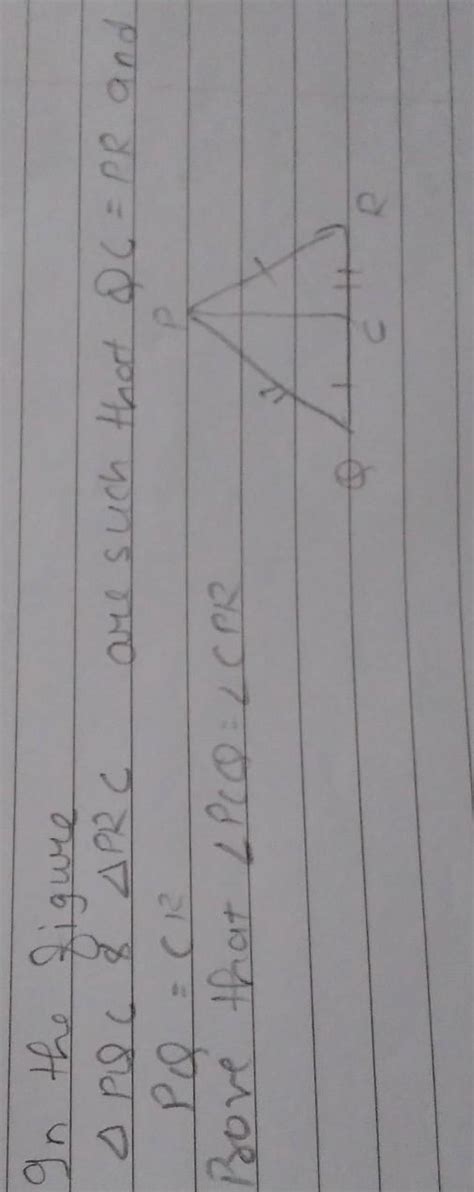 In the figure
△ PQC & △PRC are such that QC = PR and
PQ = CR
Prove that ∠PCQ = ∠CPR
P
Q
C
R